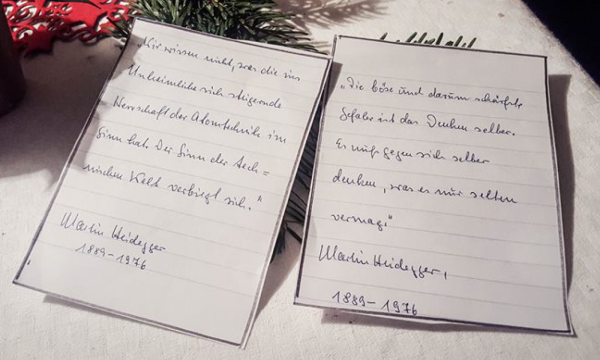 „Wir wissen nicht, was die ins
Unheimliche sich steigernde
Herrschaft der Atomtechnik im
Sinn hat. Der Sinn der tech=
nischen Welt verbirgt sich."
Martin Heidegger
1889-1976
„Die böse und darum schärfste
Gefahr ist das Denken selber.
Es muß gegen sich selber
denken, was es nur selten
vermag."
Martin Heidegger,
1889-1976